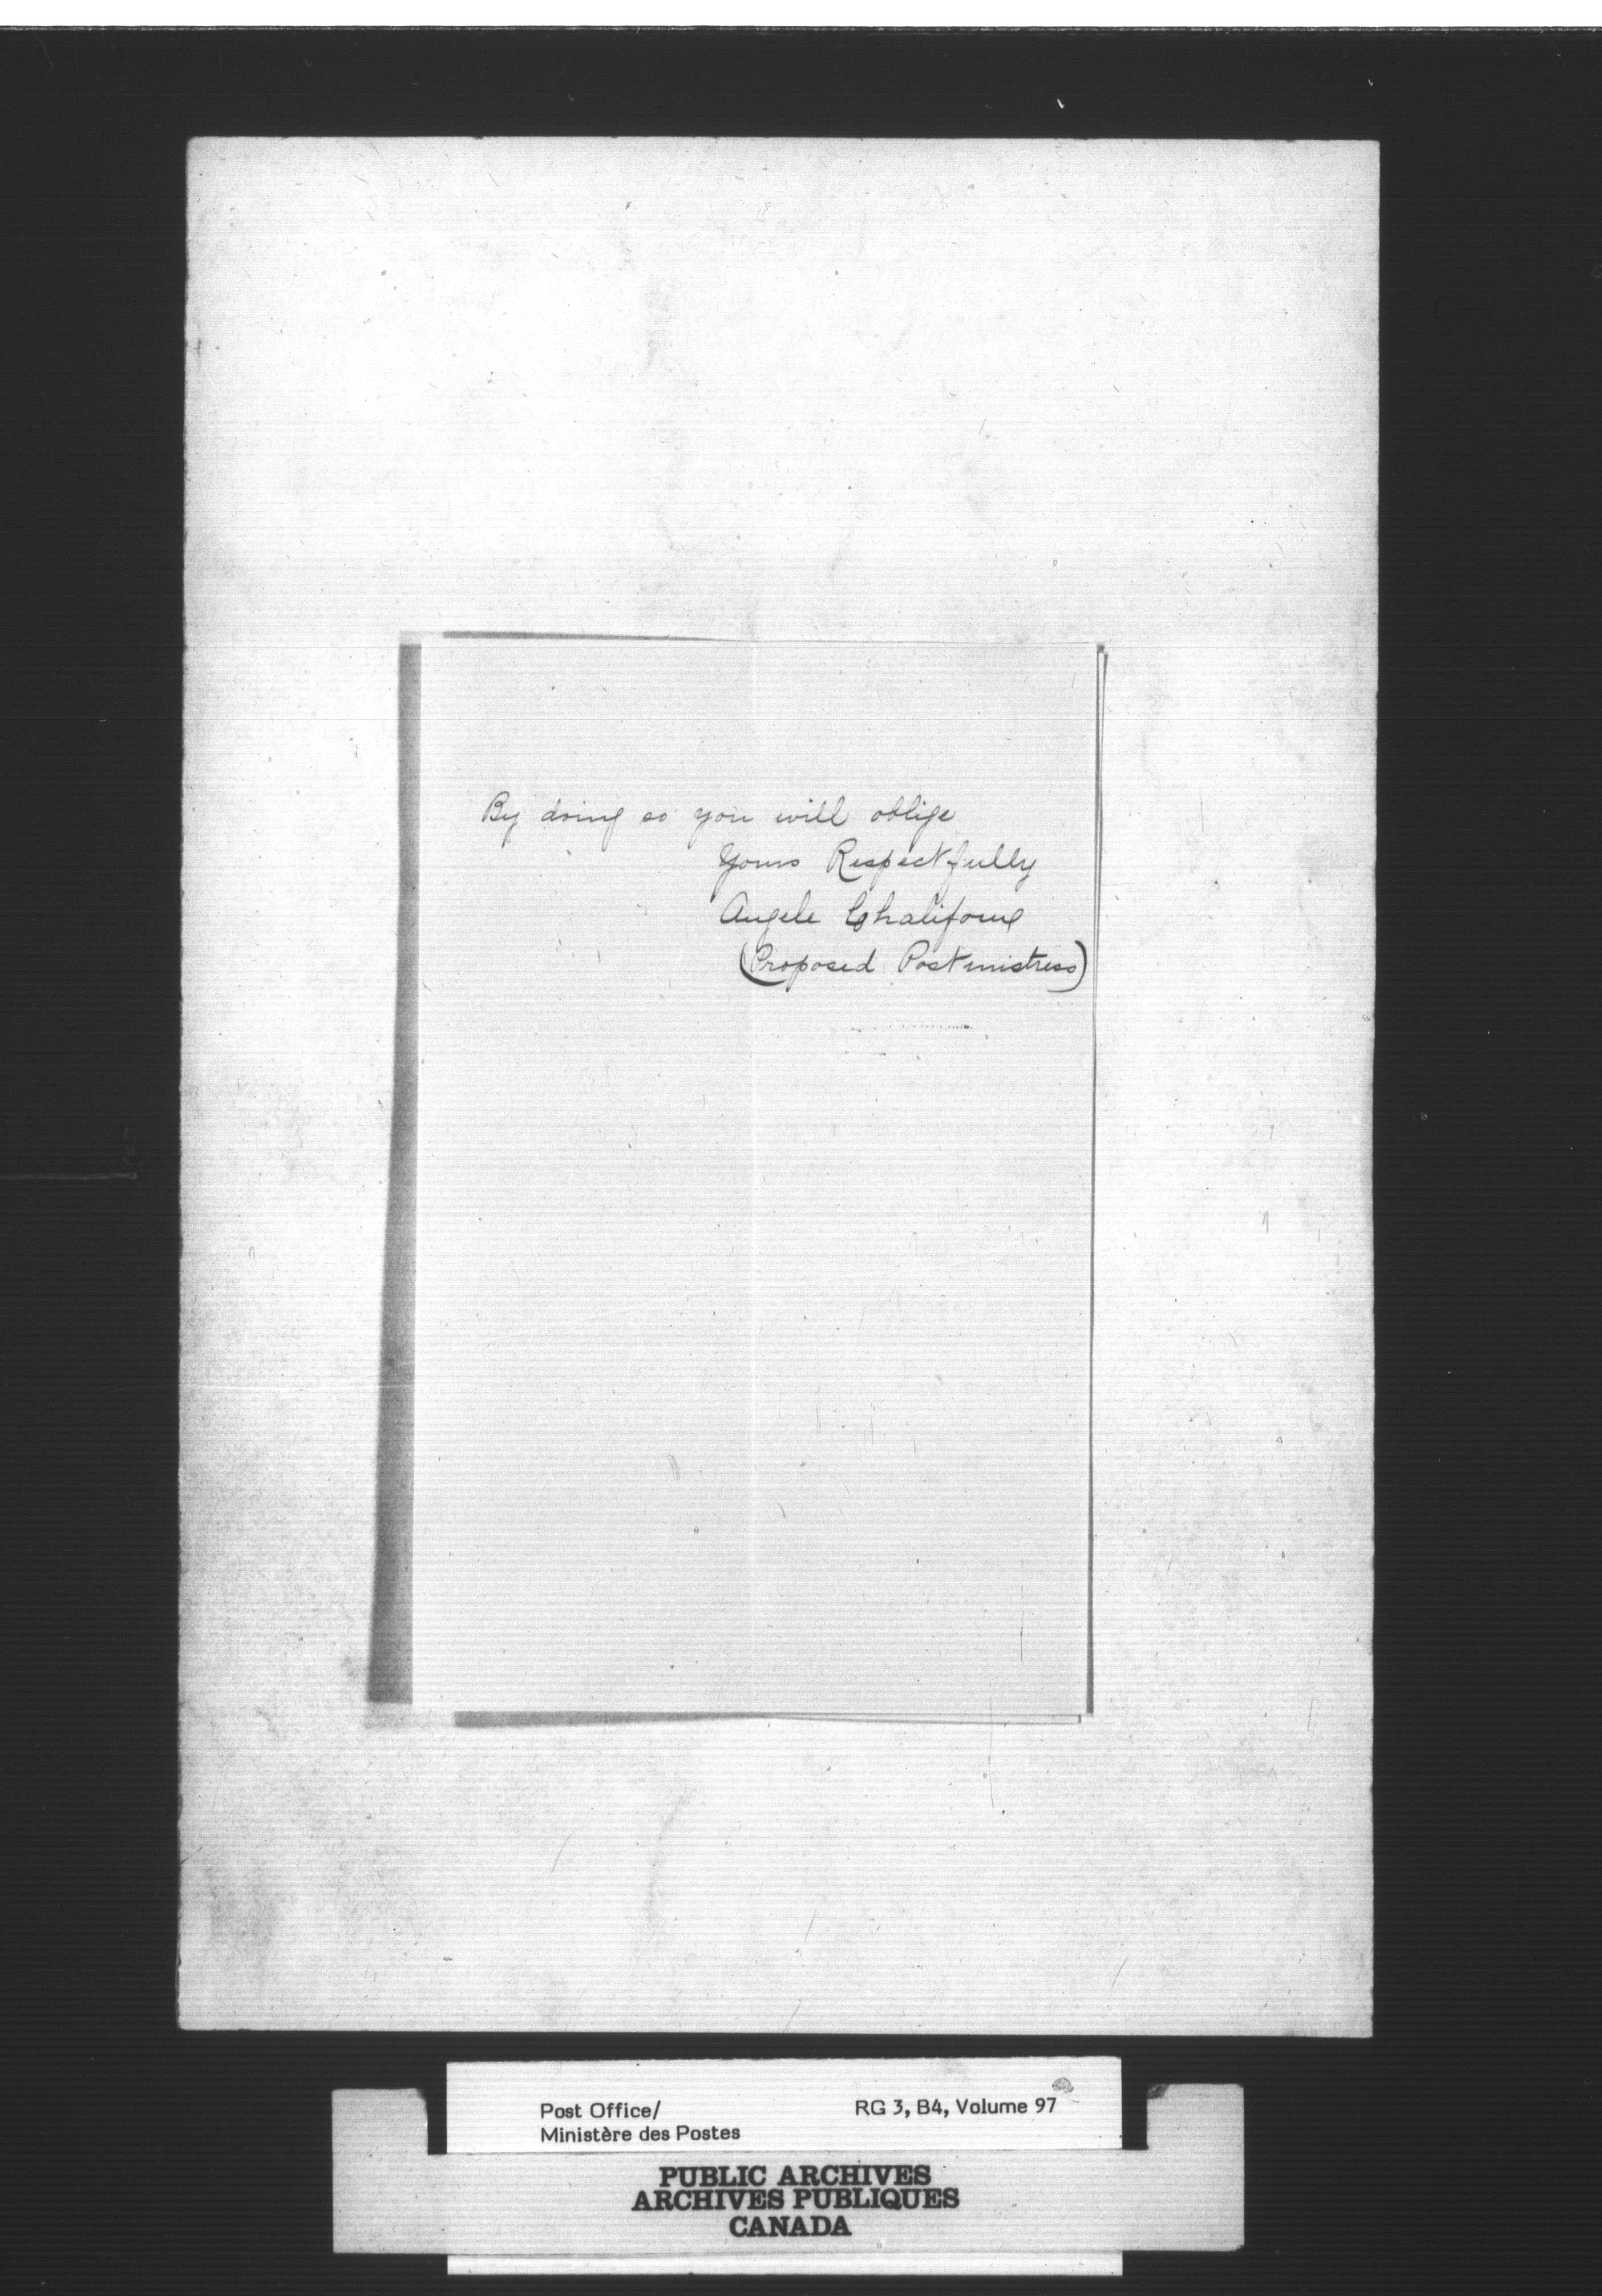 By doing so you will oblige
Yours Respectfully
Angele Chalifoux
(Proposed Postmistress)
Post Office/
Ministère des Postes
RG 3, B4, Volume 97
PUBLIC ARCHIVES
ARCHIVES PUBLIQUES
CANADA